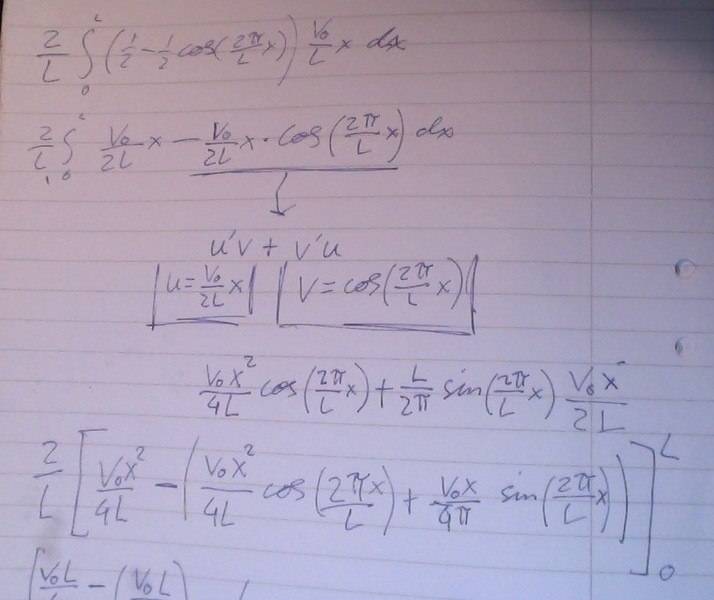 2/L ∫₀ᴸ (1/2 − 1/2 cos(2π/L x)) V₀/L x dx
2/L ∫₀ᴸ V₀/2L x − V₀/2L x · cos(2π/L x) dx
↓
u'v + v'u
|u = V₀/2L x| |v = cos(2π/L x)|
V₀x²/4L cos(2π/L x) + L/2π sin(2π/L x) V₀x/2L
2/L [V₀x²/4L − (V₀x²/4L cos(2πx/L) + V₀x/4π sin(2π/L x))]₀ᴸ